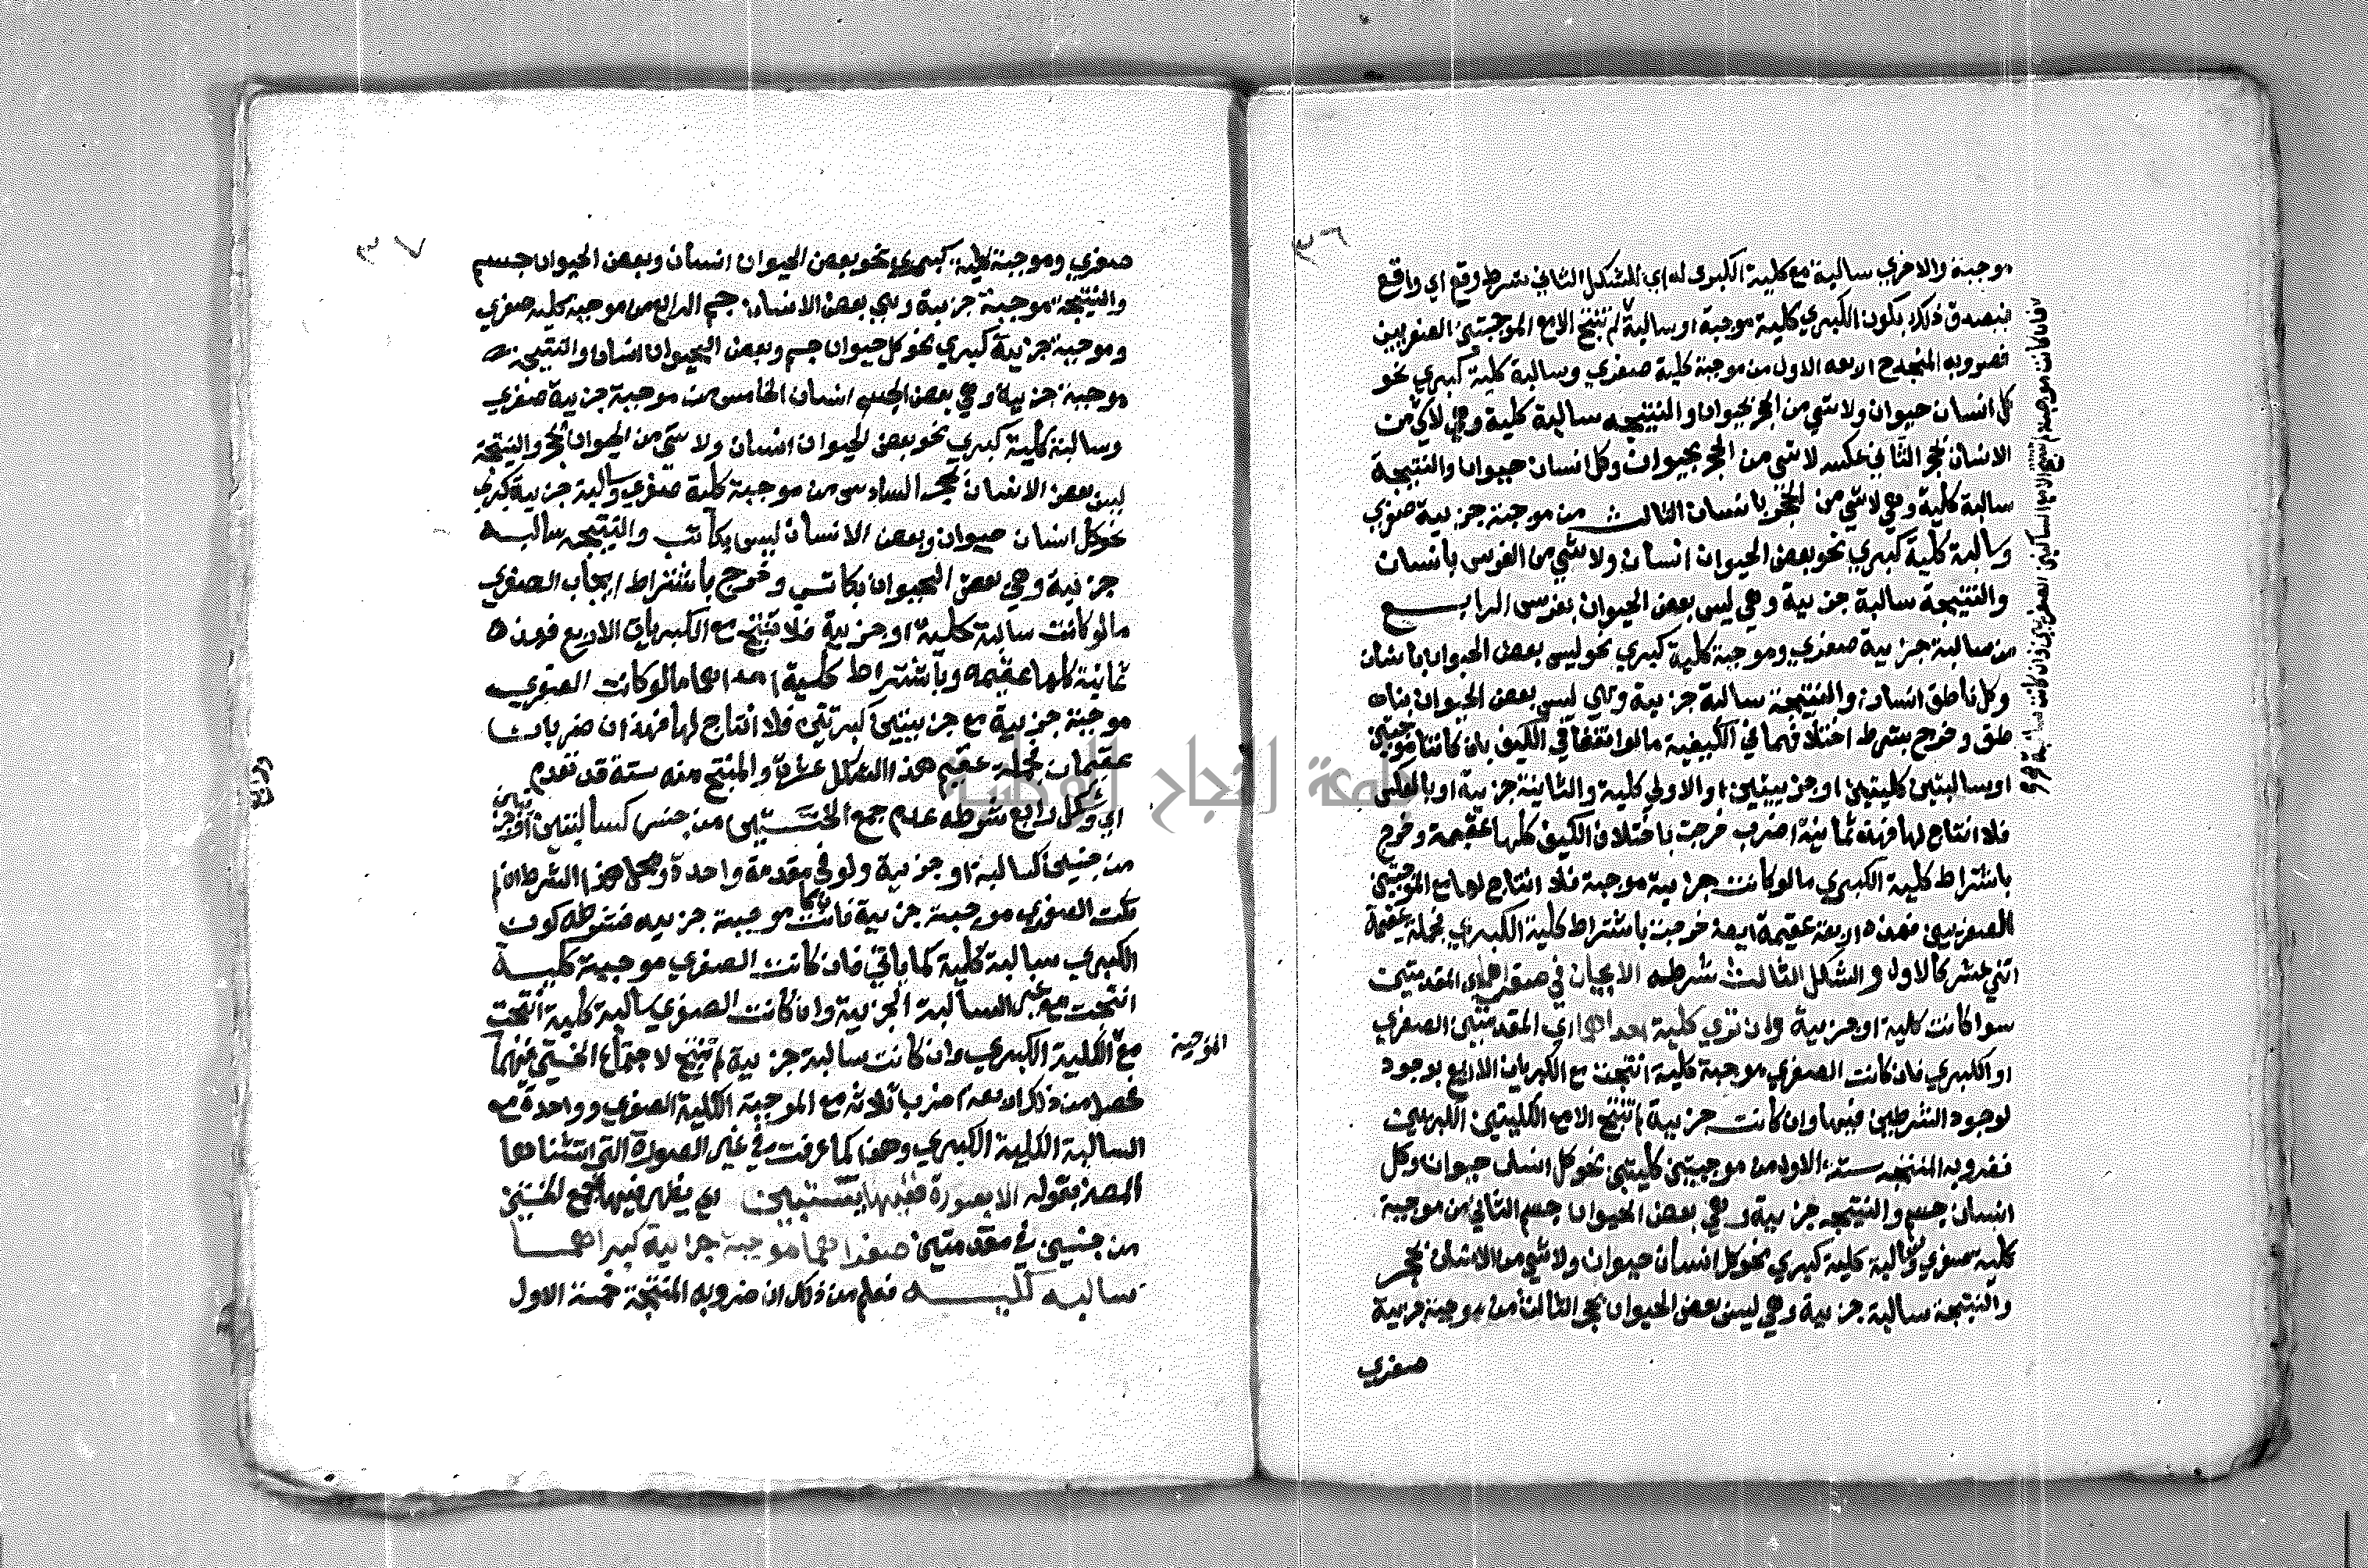 ٣٦
موجبة والاخري سالبة مع كلية الكبرى له اي للشكل الثاني شرط وقع اي واقع
فيصدق ذلك بكون الكبري كلية موجبة او سالبة لا تنتج الا مع الموجبتين الصغريين
فضروبه المنتجة ح الاربعه الاول من موجبة كلية صغري وسالبة كلية كبري نحو
كل انسان حيوان ولا شي من الحجر بحيوان والنتيجه سالبة كلية وهي لا شي من
الانسان بحجر الثاني عكسه لا شي من الحجر بحيوان وكل انسان حيوان والنتيجة
سالبة كلية وهي لا شي من الحجر بانسان الثالث من موجبة جزيية صغري
وسالبة كلية كبري نحو بعض الحيوان انسان ولا شي من الفرس بانسان
والنتيجة سالبة جزيية وهي ليس بعض الحيوان بفرس الرابع
من سالبة جزيية صغري وموجبة كلية كبري نحو ليس بعض الحيوان بانسان
وكل ناطق انسان والنتيجة سالبة جزيية وهي ليس بعض الحيوان بناه
طق وخرج بشرط اختلافهما في الكيفية مالو اتفقا في الكيف بان كانتا موجبتين
او سالبتين كليتين او جزييتين او الاولي كلية والثانية جزيية او بالعكس
فلا انتاج لها فهذه ثمانية اضرب خرجت باختلاف الكيف كلها عقيمة وخرج
باشتراط كلية الكبري مالو كانت جزيية موجبة فلا انتاج لها مع الموجبتين
الصغريين فهذه اربعة عقيمة ايضا خرجت باشتراط كلية الكبري فجملة عقيمة
اثني عشر كالاول والشكل الثالث شرطه الايجاب في صغراهما اي المقدمتين
سوا كانت كلية او جزيية وان تري كلية احداهما اي المقدمتين الصغري
او الكبري فان كانت الصغري موجبة كلية انتجت مع الكبريات الاربع بوجود
لوجود الشرطين فيها وان كانت جزيية لا تنتج الا مع الكليتين الكبريين
فضروبه المنتجه ستة الاول من موجبتين كليتين نحو كل انسان حيوان وكل
انسان جسم والنتيجه جزيية وهي بعض الحيوان جسم الثاني من موجبة
كلية صغري وسالبة كلية كبري نحو كل انسان حيوان ولا شي من الانسان بحجر
والنتيجة سالبة جزيية وهي ليس بعض الحيوان بحجر الثالث من موجبة جزيية
صغري
٣٧
صغري وموجبة كلية كبري نحو بعض الحيوان انسان وبعض الحيوان جسم
والنتيجة موجبة جزيية وهي بعض الانسان جسم الرابع من موجبة كلية صغري
وموجبة جزيية كبري نحو كل حيوان جسم وبعض الحيوان انسان والنتيجة
موجبة جزيية وهي بعض الجسم انسان الخامس من موجبة جزيية صغري
وسالبة كلية كبري نحو بعض الحيوان انسان ولا شي من الحيوان بحجر والنتيجة
ليس بعض الانسان بحجر السادس من موجبة كلية صغري وسالبة جزيية كبري
نحو كل انسان حيوان وبعض الانسان ليس بكاتب والنتيجه سالبه
جزيية وهي بعض الحيوان بكاتب وخرج باشتراط ايجاب الصغري
مالو كانت سالبة كلية او جزيية فلا تنتج مع الكبريات الاربع فهذه
ثمانية كلها عقيمه وباشتراط كلية احداهما مالو كانت الصغري
موجبة جزيية مع جزييتين كبرتين فلا انتاج لها فهذان ضربان
عقيمان فجملة عقيم هذا الشكل عشرة والمنتج منه ستة قد تقدم
اي وشكل رابع شرطه عدم جمع الخستين من جنس كسالبتين او جزييتين
من جنسين كسالبة او جزيية ولو في مقدمة واحدة ومحل هذا الشرط ان لم
تكن الصغري موجبة جزيية فان كانت موجبة جزييه فشرطه كون
الكبري سالبة كلية كما ياتي فان كانت الصغري موجبة كلية
انتجت مع غير السالبة الجزيية وان كانت الصغري سالبة كلية انتجت
مع الكلية الكبري وان كانت سالبة جزيية لم تنتج لاجتماع الخستين فيهما
الموجبة
فحصل من ذلك اربعة اضرب ثلاثه مع الموجبة الكلية الصغري وواحدة مع
السالبة الكلية الكبري وهذا كما عرفت في غير الصورة التي استثناها
المصنف بقوله الا بصورة ففيها يستبين اي يظهر فيها جمع الخستين
من جنسين في مقدمتين صغراهما موجبة جزيية كبراهما
سالبه كليه فعلم من ذلك ان ضروبه المنتجة خمسة الاول
جامعة النجاح الوطنية